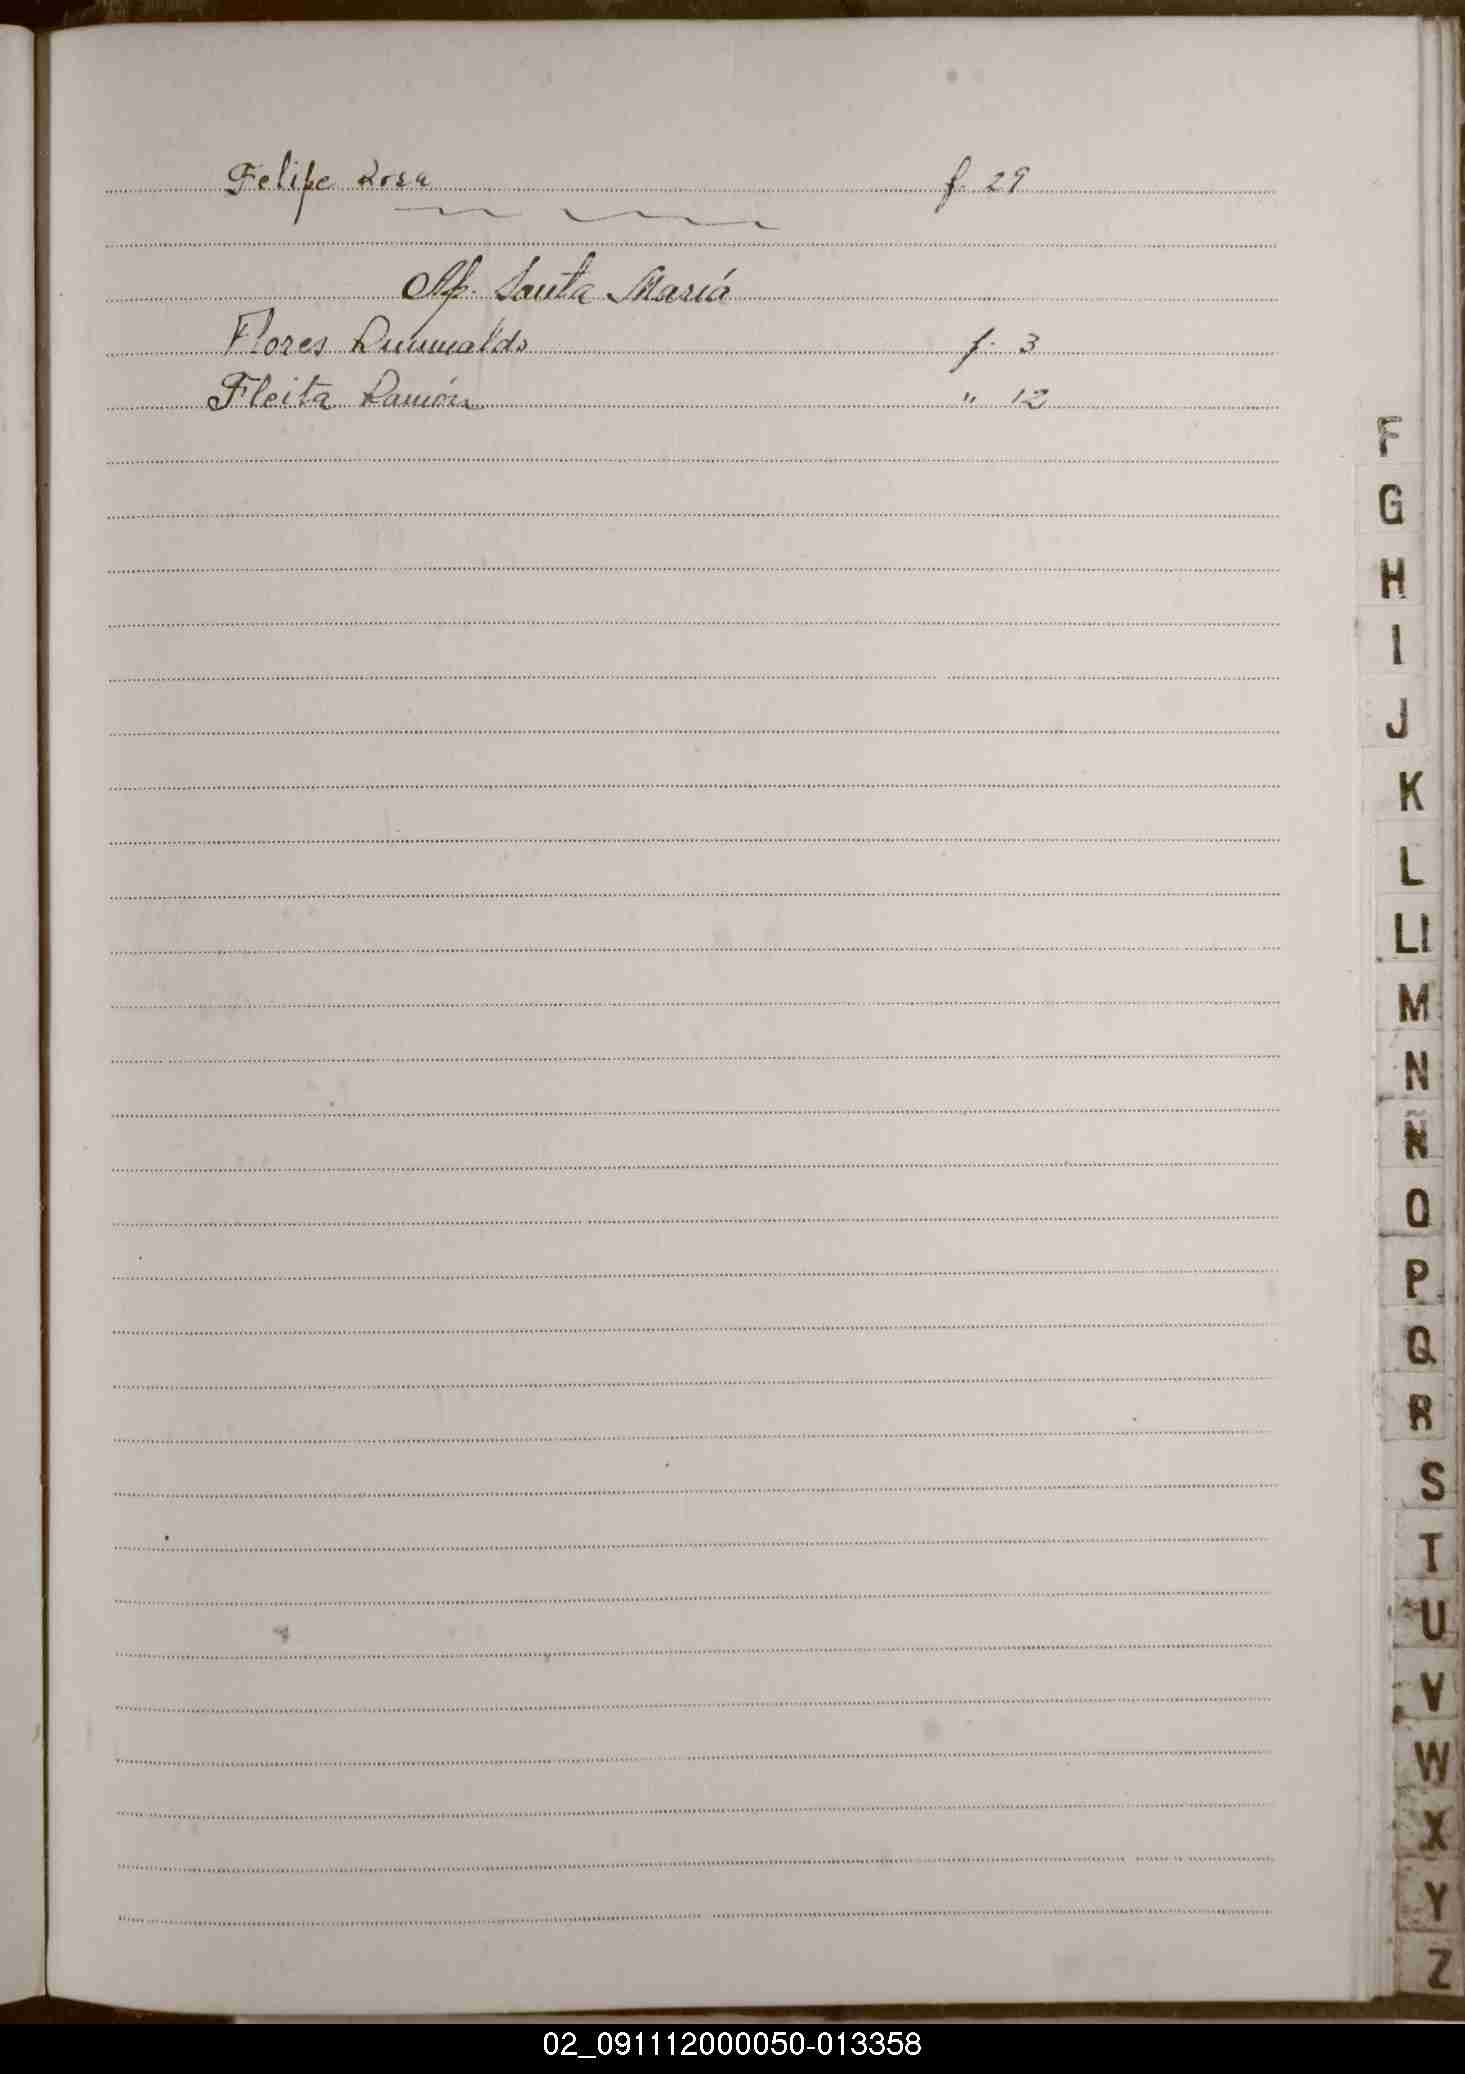 Felipe Rosa f. 29
Ap. Santa María
Flores Rumualdo f. 3
Fleita Ramón " 12
F
G
H
I
J
K
L
Ll
M
N
Ñ
O
P
Q
R
S
T
U
V
W
X
Y
Z
02_091112000050-013358